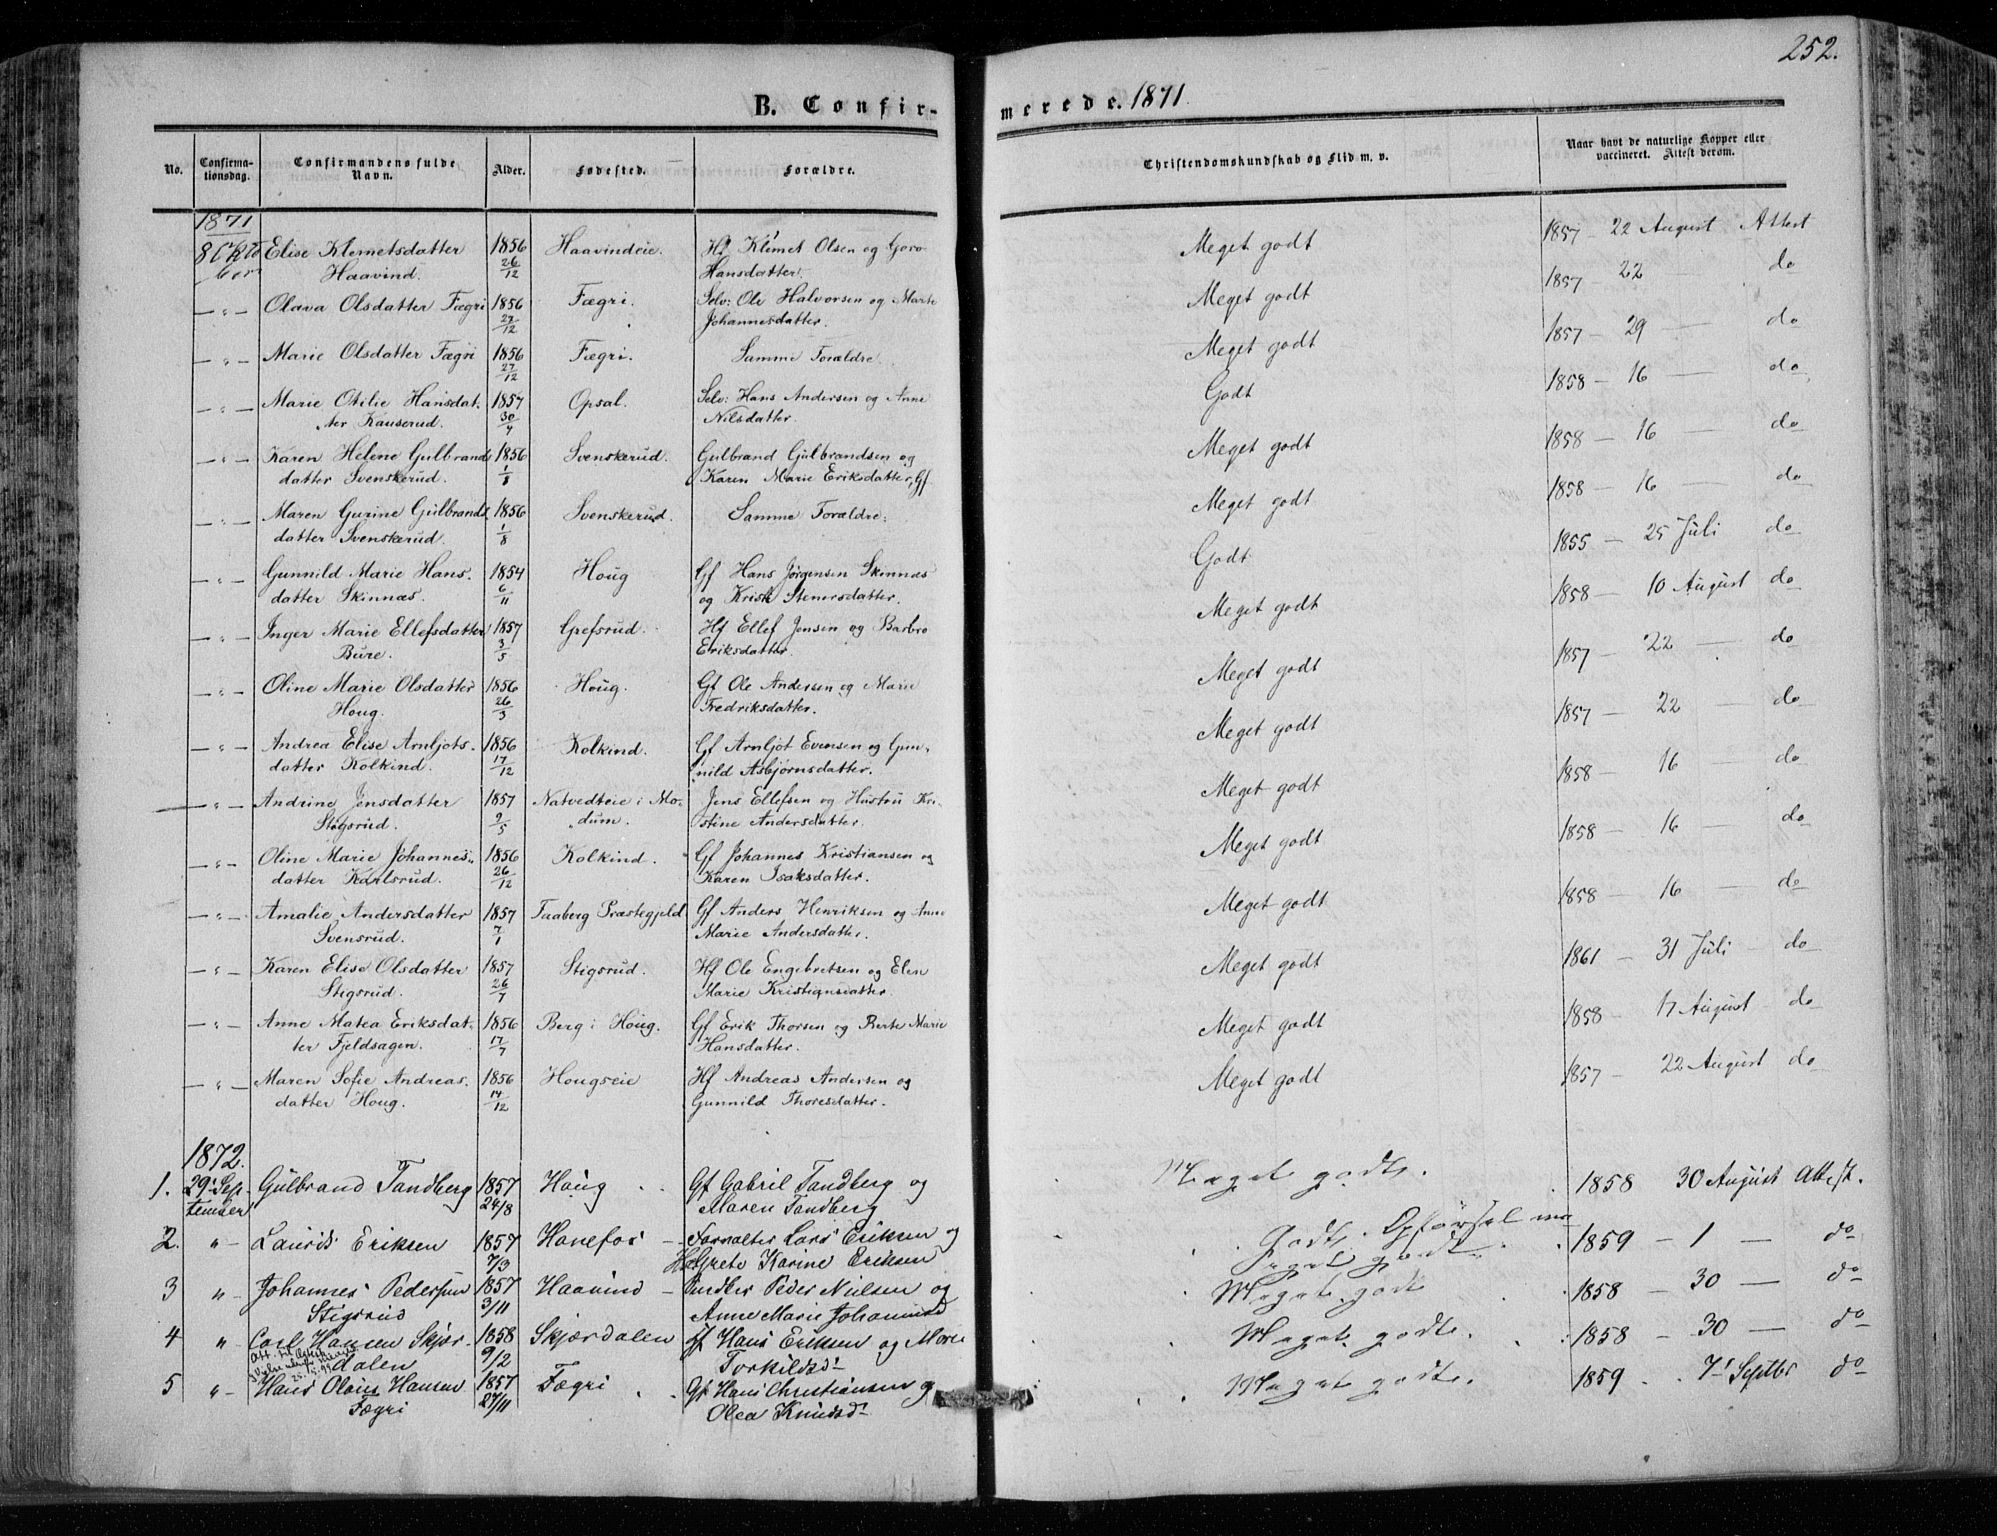 252.
B. Confir-
merede. 1871.
No. Confirma-tionsdag. Confirmandens fulde Navn. Alder. Fødested. Forældre.
Christendomskundskab og Flid m. v. Naar havt de naturlige Kopper eller vaccineret. Attest derom.
1871
8 Okto Elise Klemetsdatter 1856 Haavindeie. Hf Klemet Olsen og Goro Meget godt 1857 - 22 August Attest
ber Haavind. 26/12 Hansdatter.
— „ — Olava Olsdatter Fægri 1856 Fægri. Selv: Ole Halvorsen og Marte Meget godt 1857 - 22 — do
27/12 Johannesdatter.
— „ — Marie Olsdatter Fægri 1856 Fægri. Samme Forældre Meget godt 1857 - 29 — do
27/12
— „ — Marie Otilie Hansdat- 1857 Opsal. Selv: Hans Andersen og Anne Godt 1858 - 16 — do
ter Kauserud. 30/4 Nilsdatter.
— „ — Karen Helene Gulbrands 1856 Svenskerud. Gulbrand Gulbrandsen og Meget godt 1858 - 16 — do
datter Svenskerud. 1/8 Karen Marie Eriksdatter, Gf.
— „ — Maren Gurine Gulbrands 1856 Svenskerud. Samme Forældre. Meget godt 1858 - 16 — do
datter Svenskerud. 1/8
— „ — Gunnild Marie Hans- 1854 Houg Gf Hans Jørgensen Skinnæs Godt 1855 - 25 Juli do
datter Skinnæs. 6/11 og Kristi Stenersdatter.
— „ — Inger Marie Ellefsdatter 1857 Grefsrud. Hf Ellef Jensen og Barbro Meget godt 1858 - 10 August do
Bure. 3/5 Eriksdatter.
— „ — Oline Marie Olsdatter 1856 Houg. Gf Ole Andersen og Marie Meget godt 1857 - 22 — do
Houg. 26/3 Fredriksdatter.
— „ — Andrea Elise Arnljots- 1856 Kolkind. Gf Arnljot Evensen og Gun- Meget godt 1857 - 22 — do
datter Kolkind. 17/12 nild Asbjørnsdatter.
— „ — Andrine Jensdatter 1857 Natvedteie i Mo- Jens Ellefsen og Hustru Kri- Meget godt 1858 - 16 — do
Stigsrud. 9/5 dum. stine Andersdatter.
— „ — Oline Marie Johannes- 1856 Kolkind. Gf Johannes Kristiansen og Meget godt 1858 - 16 — do
datter Karlsrud. 26/12 Karen Isaksdatter.
— „ — Amalie Andersdatter 1857 Faaberg Præstegjeld. Gf Anders Henriksen og Anne Meget godt 1858 - 16 — do
Svensrud. 7/1 Marie Andersdatter.
— „ — Karen Elise Olsdatter 1857 Stigsrud. Hf Ole Engebretsen og Elen Meget godt 1861 - 31 Juli - do
Stigsrud. 26/7 Marie Kristiansdatter.
— „ — Anne Matea Eriksdat- 1856 Berg i Houg. Gf Erik Thorsen og Berte Marie Meget godt 1858 - 17 August - do
ter Fjeldsagen. 17/7 Hansdatter.
— „ — Maren Sofie Andreas- 1856 Hougseie Hf Andreas Andersen og Meget godt 1857 - 22 August do
datter Houg. 14/12 Gunnild Thoresdatter.
1872.
1. 29 Sep- Gulbrand Tandberg 1857 Houg Gf Gabriel Tandberg og Meget godt. 1858 30 August Attest.
tember 24/8 Maren Tandberg
2. „ Laurids Eriksen 1857 Hønefos Lars Eriksen og Godt. Opførsel 1859 - 1 — do
7/3 Grete Karine Eriksen meget godt
3 „ Johannes Pedersen 1857 Haavind Peder Nielsen og Meget godt 1858 - 30 — do
Stigsrud 3/11 Anne Marie Johannesd
4 „ Carl Hansen Skjær- 1858 Skjærdalen Hans Eriksen og Maren Meget godt. 1858 - 30 — do
dalen 9/2 Torkildsd.
5 „ Hans Olaus Hansen 1857 Fægri Gf Hans Christiansen og Meget godt. 1859 7' Septbr do
Fægri 27/11 Olea Knudsd.